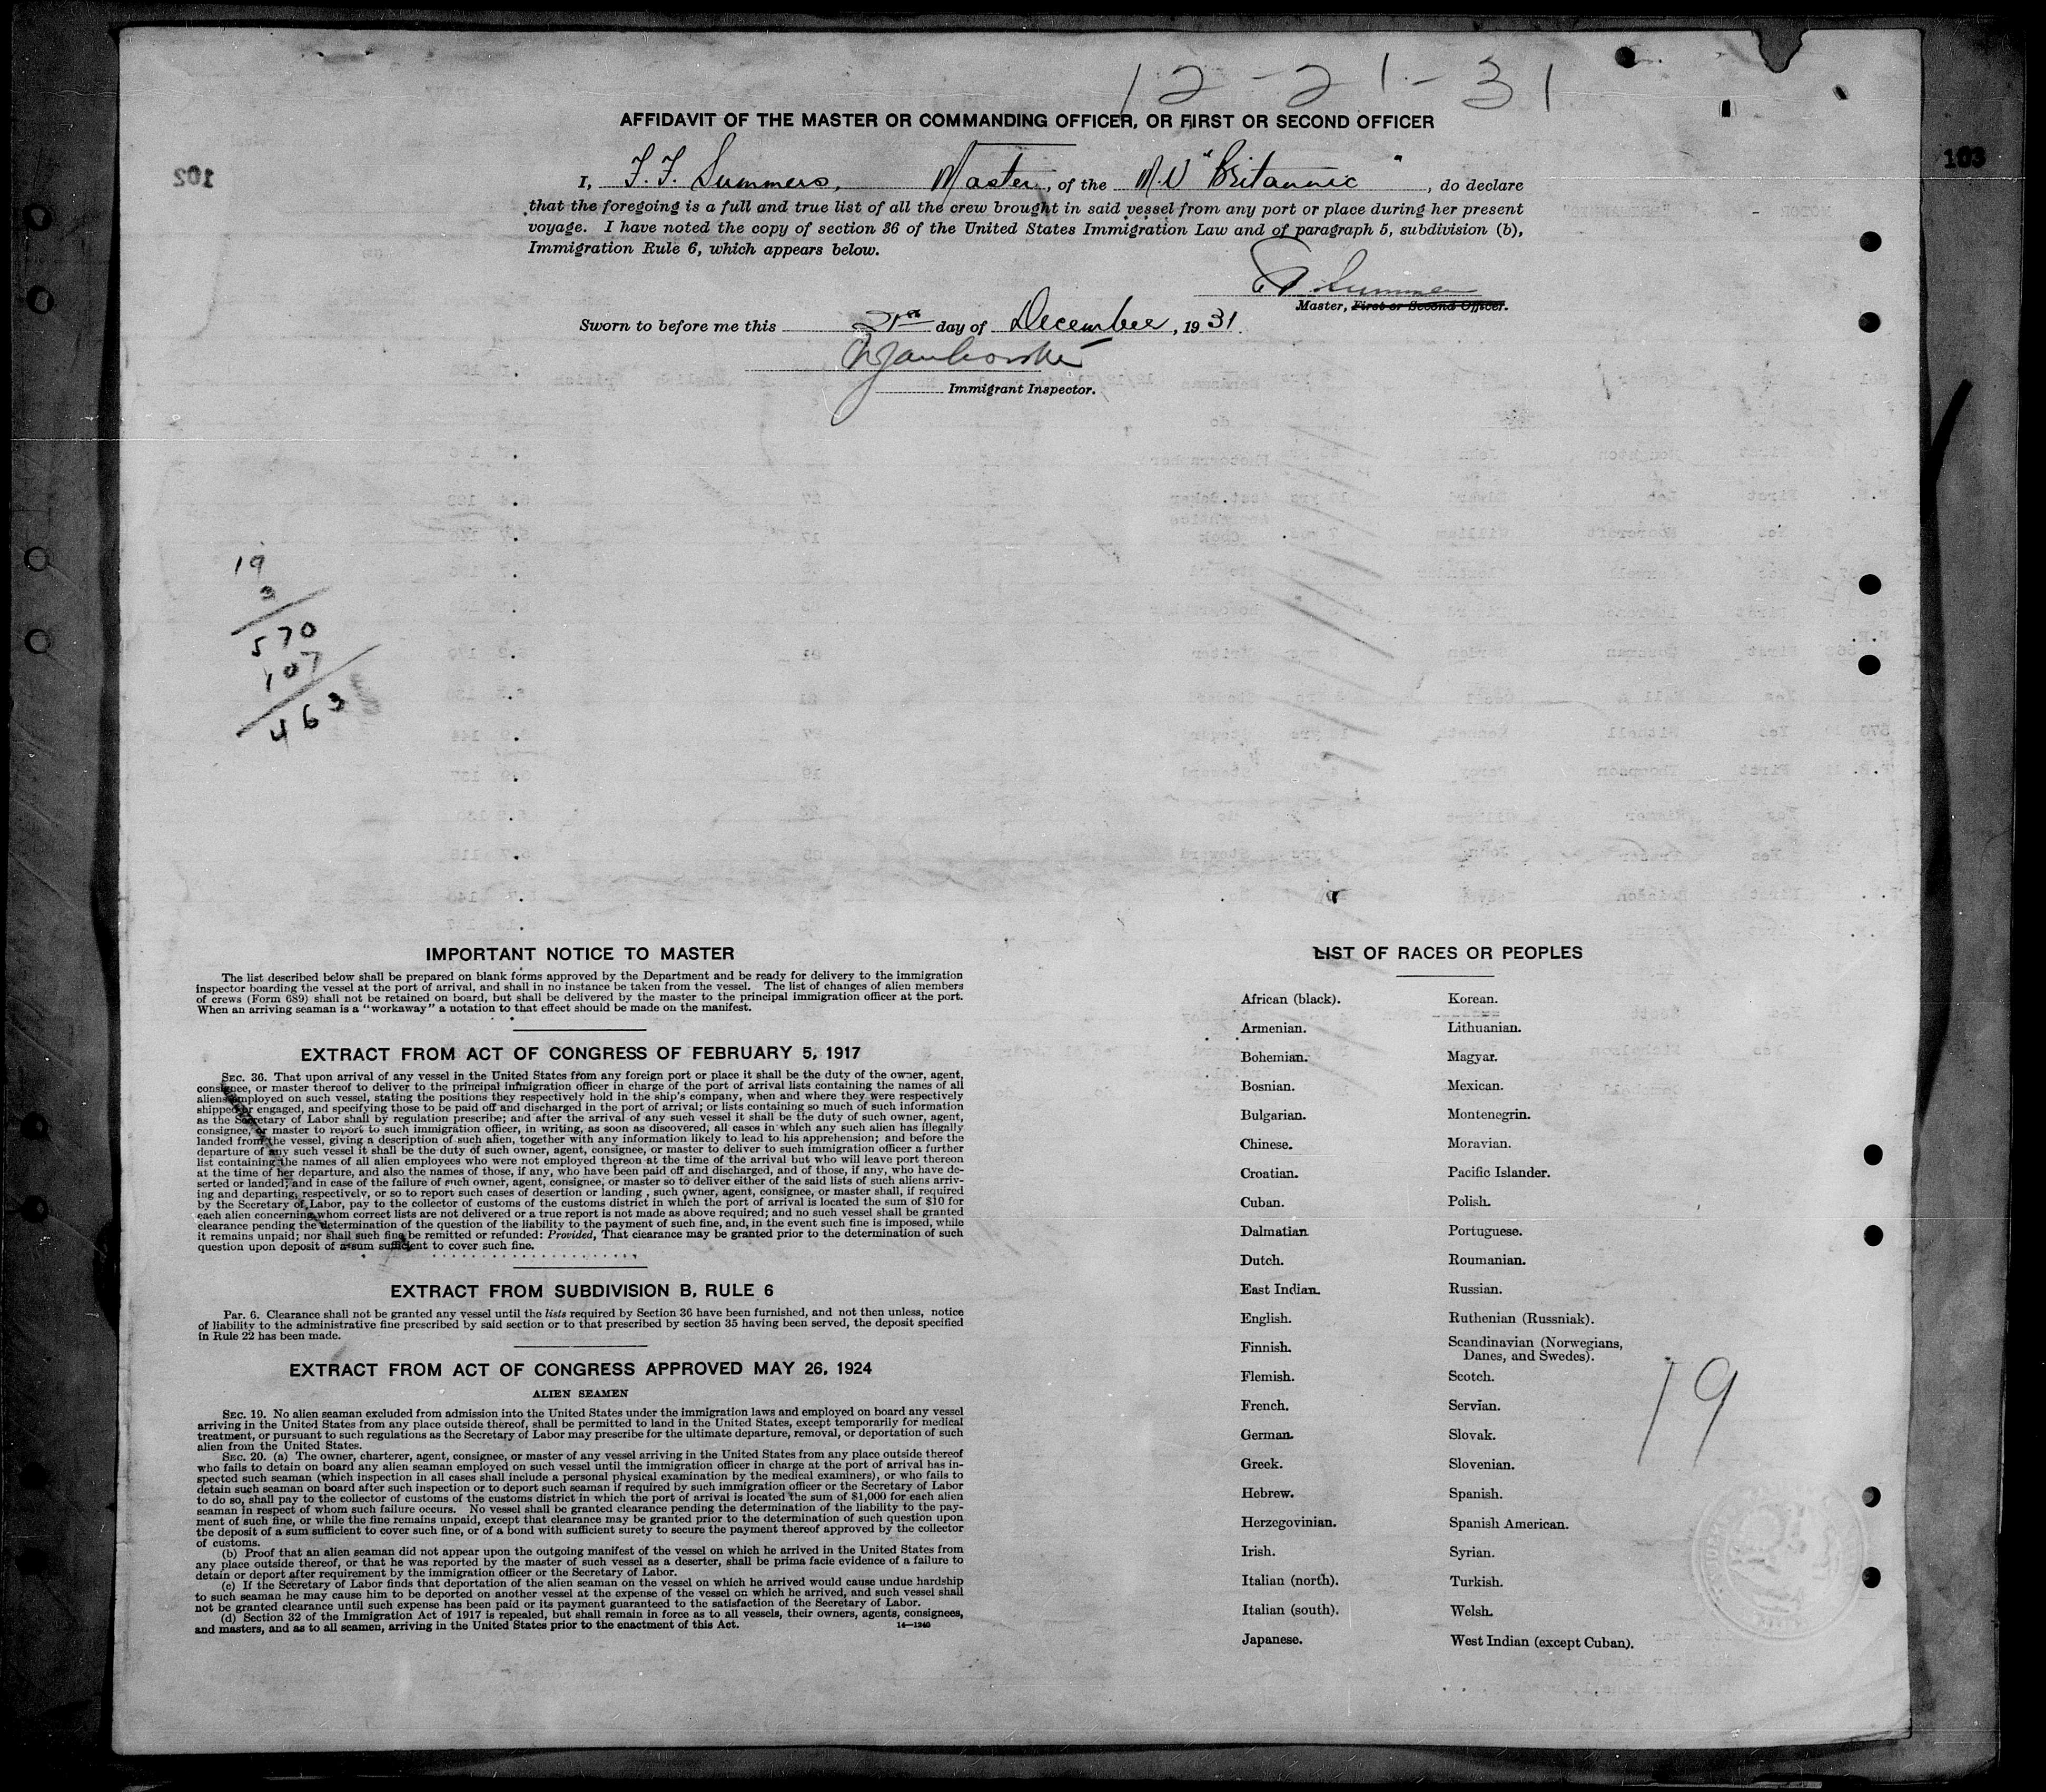 12-21-31
AFFIDAVIT OF THE MASTER OR COMMANDING OFFICER, OR FIRST OR SECOND OFFICER
103
102
I, F. F. Summers, Master, of the M.V "Britannic", do declare
that the foregoing is a full and true list of all the crew brought in said vessel from any port or place during her present
voyage. I have noted the copy of section 36 of the United States Immigration Law and of paragraph 5, subdivision (b),
Immigration Rule 6, which appears below.
Summers
Master, First or Second Officer.
Sworn to before me this 21st day of December, 1931.
Immigrant Inspector.
19
3
570
107
463
IMPORTANT NOTICE TO MASTER
The list described below shall be prepared on blank forms approved by the Department and be ready for delivery to the immigration
inspector boarding the vessel at the port of arrival, and shall in no instance be taken from the vessel. The list of changes of alien members
of crews (Form 689) shall not be retained on board, but shall be delivered by the master to the principal immigration officer at the port.
When an arriving seaman is a "workaway" a notation to that effect should be made on the manifest.
EXTRACT FROM ACT OF CONGRESS OF FEBRUARY 5, 1917
SEC. 36. That upon arrival of any vessel in the United States from any foreign port or place it shall be the duty of the owner, agent,
consignee, or master thereof to deliver to the principal immigration officer in charge of the port of arrival lists containing the names of all
aliens employed on such vessel, stating the positions they respectively hold in the ship's company, when and where they were respectively
shipped or engaged, and specifying those to be paid off and discharged in the port of arrival; or lists containing so much of such information
as the Secretary of Labor shall by regulation prescribe; and after the arrival of any such vessel it shall be the duty of such owner, agent,
consignee, or master to report to such immigration officer, in writing, as soon as discovered, all cases in which any such alien has illegally
landed from the vessel, giving a description of such alien, together with any information likely to lead to his apprehension; and before the
departure of any such vessel it shall be the duty of such owner, agent, consignee, or master to deliver to such immigration officer a further
list containing the names of all alien employees who were not employed thereon at the time of the arrival but who will leave port thereon
at the time of her departure, and also the names of those, if any, who have been paid off and discharged, and of those, if any, who have de-
serted or landed; and in case of the failure of such owner, agent, consignee, or master so to deliver either of the said lists of such aliens arriv-
ing and departing, respectively, or so to report such cases of desertion or landing, such owner, agent, consignee, or master shall, if required
by the Secretary of Labor, pay to the collector of customs of the customs district in which the port of arrival is located the sum of $10 for
each alien concerning whom correct lists are not delivered or a true report is not made as above required; and no such vessel shall be granted
clearance pending the determination of the question of the liability to the payment of such fine, and, in the event such fine is imposed, while
it remains unpaid; nor shall such fine be remitted or refunded: Provided, That clearance may be granted prior to the determination of such
question upon deposit of a sum sufficient to cover such fine.
EXTRACT FROM SUBDIVISION B, RULE 6
Par. 6. Clearance shall not be granted any vessel until the lists required by Section 36 have been furnished, and not then unless, notice
of liability to the administrative fine prescribed by said section or to that prescribed by section 35 having been served, the deposit specified
in Rule 22 has been made.
EXTRACT FROM ACT OF CONGRESS APPROVED MAY 26, 1924
ALIEN SEAMEN
SEC. 19. No alien seaman excluded from admission into the United States under the immigration laws and employed on board any vessel
arriving in the United States from any place outside thereof, shall be permitted to land in the United States, except temporarily for medical
treatment, or pursuant to such regulations as the Secretary of Labor may prescribe for the ultimate departure, removal, or deportation of such
alien from the United States.
SEC. 20. (a) The owner, charterer, agent, consignee, or master of any vessel arriving in the United States from any place outside thereof
who fails to detain on board any alien seaman employed on such vessel until the immigration officer in charge at the port of arrival has in-
spected such seaman (which inspection in all cases shall include a personal physical examination by the medical examiners), or who fails to
detain such seaman on board after such inspection or to deport such seaman if required by such immigration officer or the Secretary of Labor
to do so, shall pay to the collector of customs of the customs district in which the port of arrival is located the sum of $1,000 for each alien
seaman in respect of whom such failure occurs. No vessel shall be granted clearance pending the determination of the liability to the pay-
ment of such fine, or while the fine remains unpaid, except that clearance may be granted prior to the determination of such question upon
the deposit of a sum sufficient to cover such fine, or of a bond with sufficient surety to secure the payment thereof approved by the collector
of customs.
(b) Proof that an alien seaman did not appear upon the outgoing manifest of the vessel on which he arrived in the United States from
any place outside thereof, or that he was reported by the master of such vessel as a deserter, shall be prima facie evidence of a failure to
detain or deport after requirement by the immigration officer or the Secretary of Labor.
(c) If the Secretary of Labor finds that deportation of the alien seaman on the vessel on which he arrived would cause undue hardship
to such seaman he may cause him to be deported on another vessel at the expense of the vessel on which he arrived, and such vessel shall
not be granted clearance until such expense has been paid or its payment guaranteed to the satisfaction of the Secretary of Labor.
(d) Section 32 of the Immigration Act of 1917 is repealed, but shall remain in force as to all vessels, their owners, agents, consignees,
and masters, and as to all seamen, arriving in the United States prior to the enactment of this Act.
14—1240
LIST OF RACES OR PEOPLES
African (black). Korean.
Armenian. Lithuanian.
Bohemian. Magyar.
Bosnian. Mexican.
Bulgarian. Montenegrin.
Chinese. Moravian.
Croatian. Pacific Islander.
Cuban. Polish.
Dalmatian. Portuguese.
Dutch. Roumanian.
East Indian. Russian.
English. Ruthenian (Russniak).
Finnish. Scandinavian (Norwegians,
Danes, and Swedes).
Flemish. Scotch.
French. Servian.
German. Slovak.
Greek. Slovenian.
Hebrew. Spanish.
Herzegovinian. Spanish American.
Irish. Syrian.
Italian (north). Turkish.
Italian (south). Welsh.
Japanese. West Indian (except Cuban).
19